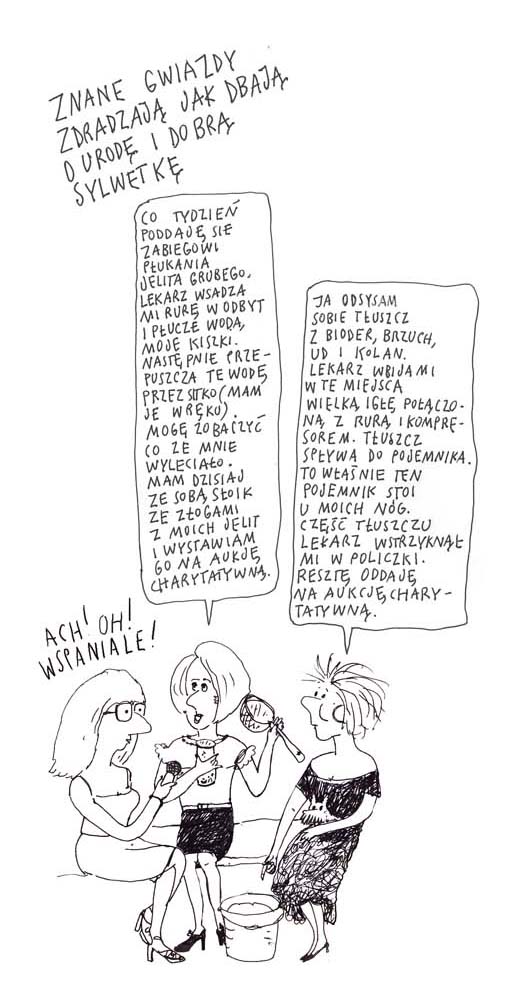 ZNANE GWIAZDY
ZDRADZAJĄ JAK DBAJĄ
O URODĘ I DOBRĄ
SYLWETKĘ
CO TYDZIEŃ
PODDAJĘ SIĘ
ZABIEGOWI
PŁUKANIA
JELITA GRUBEGO.
LEKARZ WSADZA
MI RURĘ W ODBYT
I PŁUCZE WODĄ,
MOJE KISZKI.
NASTĘPNIE PRZE-
PUSZCZA TE WODĘ
PRZEZ SITKO (MAM
JE W RĘKU).
MOGĘ ZOBACZYĆ
CO ZE MNIE
WYLECIAŁO.
MAM DZISIAJ
ZE SOBĄ SŁOIK
ZE ZŁOGAMI
Z MOICH JELIT
I WYSTAWIAM
GO NA AUKCJĘ
CHARYTATYWNĄ.
JA ODSYSAM
SOBIE TŁUSZCZ
Z BIODER, BRZUCH,
UD I KOLAN.
LEKARZ WBIJA MI
W TE MIEJSCA
WIELKĄ IGŁĘ POŁĄCZO-
NĄ Z RURĄ I KOMPRE-
SOREM. TŁUSZCZ
SPŁYWA DO POJEMNIKA.
TO WŁAŚNIE TEN
POJEMNIK STOI
U MOICH NÓG.
CZĘŚĆ TŁUSZCZU
LEKARZ WSTRZYKNĄŁ
MI W POLICZKI.
RESZTĘ ODDAJĘ
NA AUKCJĘ CHARY-
TATYWNĄ.
ACH! OH!
WSPANIALE!